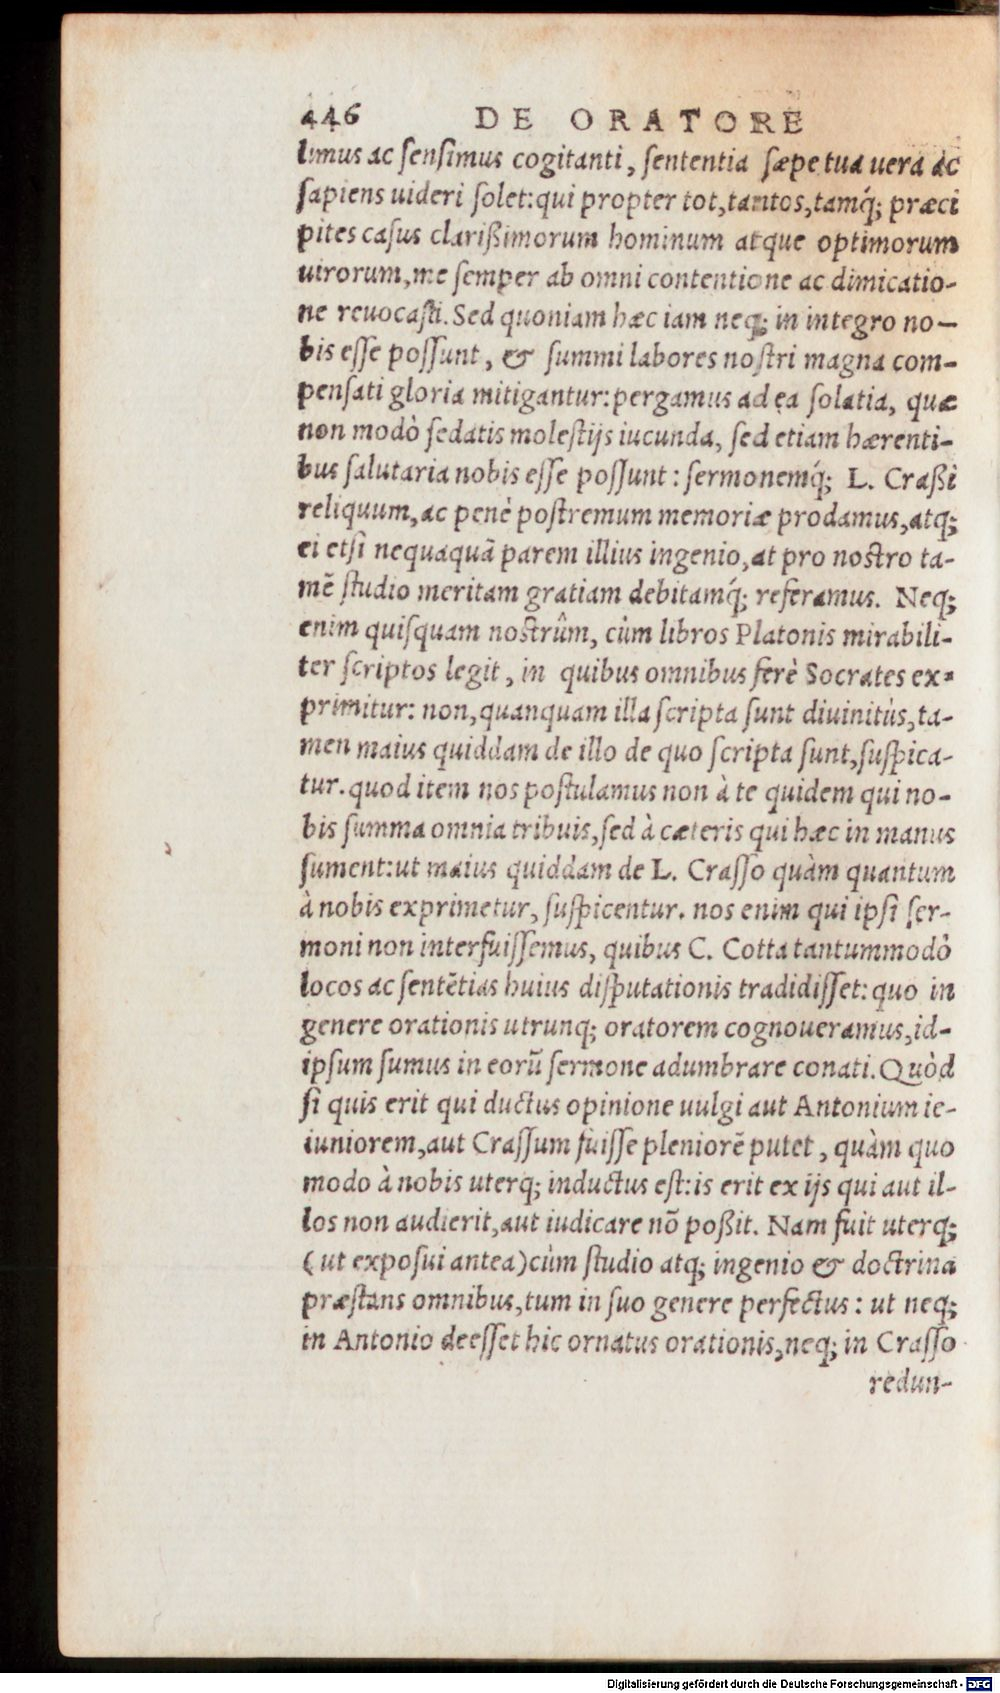 446 DE ORATORE
limus ac ſenſimus cogitanti, ſententia ſæpe tua uera ac
ſapiens uideri ſolet: qui propter tot, tantos, tamq́; præci
pites caſus clarißimorum hominum atque optimorum
uirorum, me ſemper ab omni contentione ac dimicatio-
ne reuocaſti. Sed quoniam hæc iam neq; in integro no-
bis eſſe poſſunt, & ſummi labores noſtri magna com-
penſati gloria mitigantur: pergamus ad ea ſolatia, quæ
non modò ſedatis moleſtijs iucunda, ſed etiam hærenti-
bus ſalutaria nobis eſſe poſſunt: ſermonemq́; L. Craßi
reliquum, ac penè poſtremum memoriæ prodamus, atq;
ei etſi nequaquã parem illius ingenio, at pro noſtro ta-
mẽ ſtudio meritam gratiam debitamq́; referamus. Neq;
enim quiſquam noſtrûm, cùm libros Platonis mirabili-
ter ſcriptos legit, in quibus omnibus ferè Socrates ex-
primitur: non, quanquam illa ſcripta ſunt diuinitùs, ta-
men maius quiddam de illo de quo ſcripta ſunt, ſuſpica-
tur. quod item nos poſtulamus non à te quidem qui no-
bis ſumma omnia tribuis, ſed à cæteris qui hæc in manus
ſument: ut maius quiddam de L. Craſſo quàm quantum
à nobis exprimetur, ſuſpicentur. nos enim qui ipſi ſer-
moni non interfuiſſemus, quibus C. Cotta tantummodò
locos ac ſentẽtias huius diſputationis tradidiſſet: quo in
genere orationis utrunq; oratorem cognoueramus, id-
ipſum ſumus in eorũ ſermone adumbrare conati. Quòd
ſi quis erit qui ductus opinione uulgi aut Antonium ie-
iuniorem, aut Craſſum fuiſſe pleniorẽ putet, quàm quo
modo à nobis uterq; inductus eſt: is erit ex ijs qui aut il-
los non audierit, aut iudicare nõ poßit. Nam fuit uterq;
(ut expoſui antea) cùm ſtudio atq; ingenio & doctrina
præſtans omnibus, tum in ſuo genere perfectus: ut neq;
in Antonio deeſſet hic ornatus orationis, neq; in Craſſo
redun-
Digitalisierung gefördert durch die Deutsche Forschungsgemeinschaft - DFG